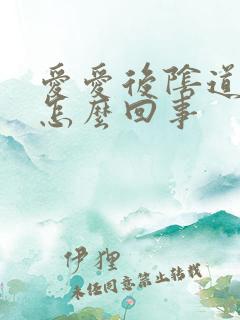 愛愛後陰道
怎麼回事
伊狸
未經同意禁止轉載